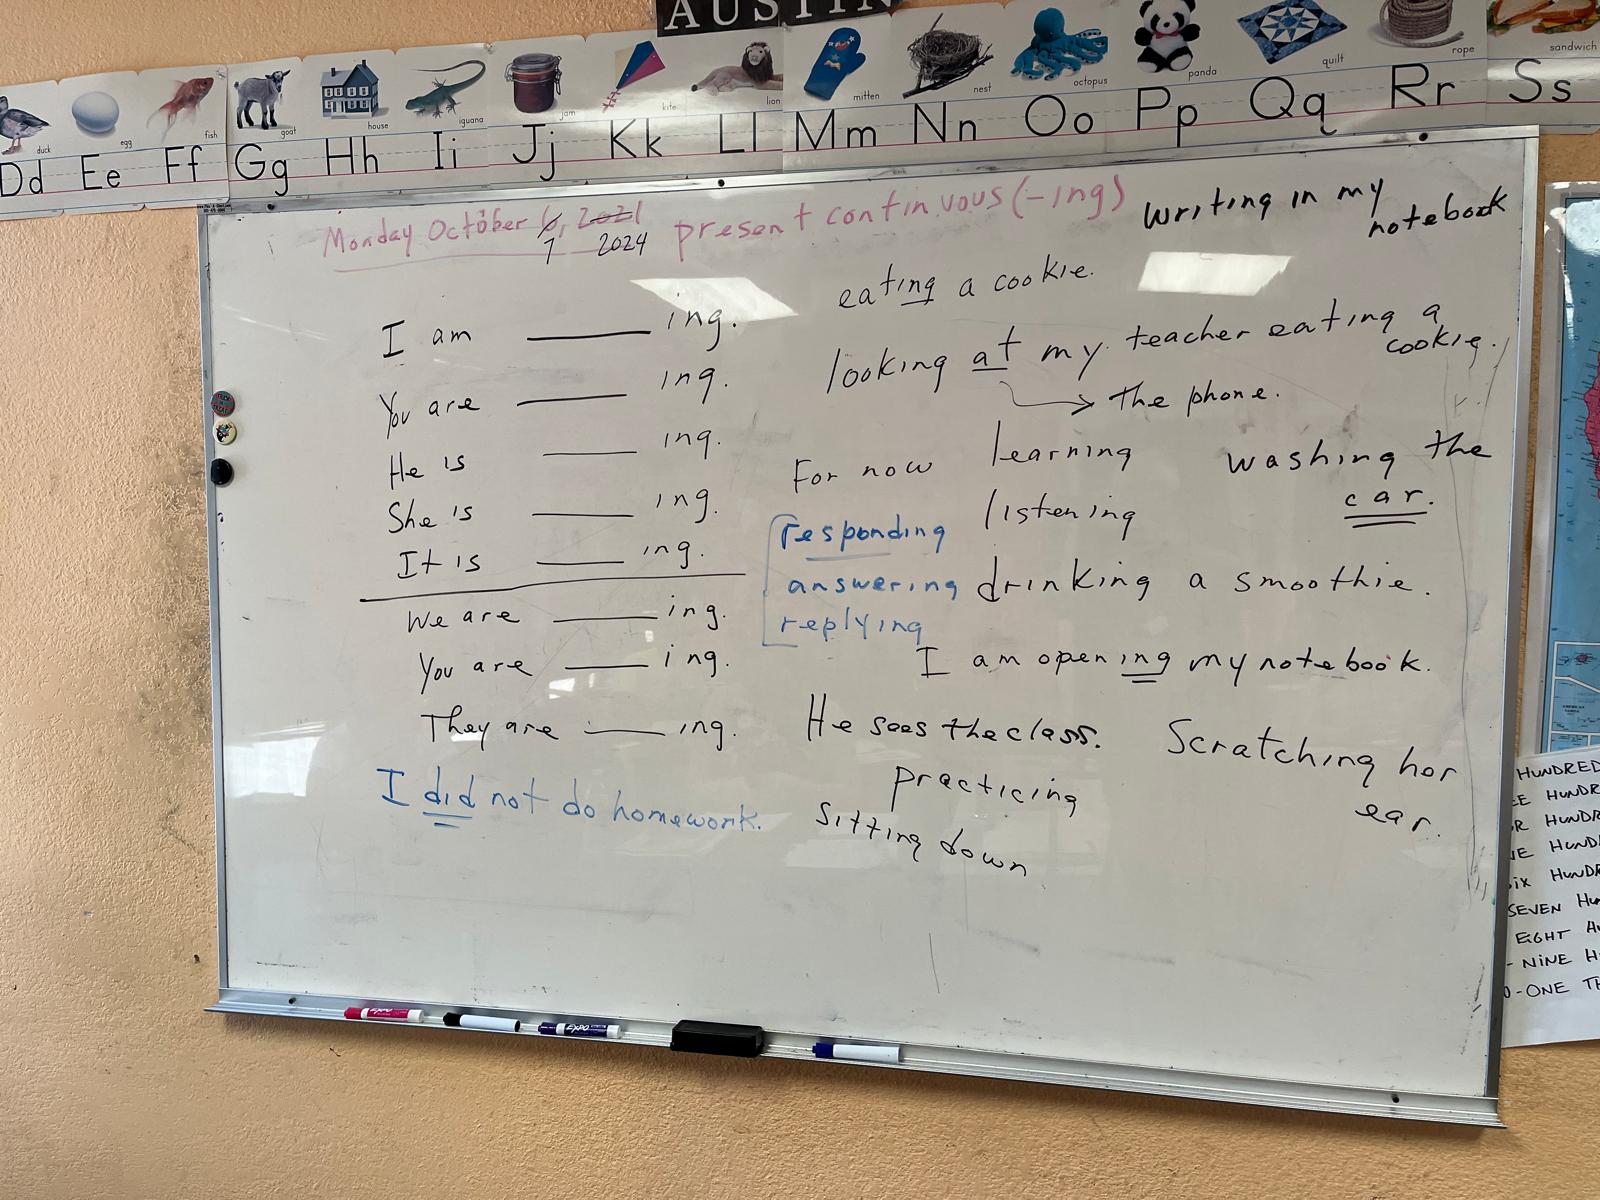 AUSTIN
duck
egg
fish
goat
house
iguana
jam
kite
lion
mitten
nest
octopus
panda
quilt
rope
sandwich
Dd Ee Ff Gg Hh Ii Jj Kk Ll Mm Nn Oo Pp Qq Rr Ss
Monday October 6, 2021
7 2024
present continuous (-ing)
writing in my
notebook
I am ______ ing.
You are ______ ing.
He is ______ ing.
She is ______ ing.
It is ______ ing.
We are ______ ing.
You are ______ ing.
They are ______ ing.
I did not do homework.
eating a cookie.
looking at my teacher eating a
cookie.
→ the phone.
For now
learning
washing the
car.
listening
responding
answering
replying
drinking a smoothie.
I am opening my notebook.
He sees the class.
Scratching her
ear.
practicing
sitting down
EXPO
EXPO
HUNDRED
HUNDR
HUNDR
HUND
SIX HUNDR
SEVEN HU
EIGHT H
- NINE H
- ONE TH